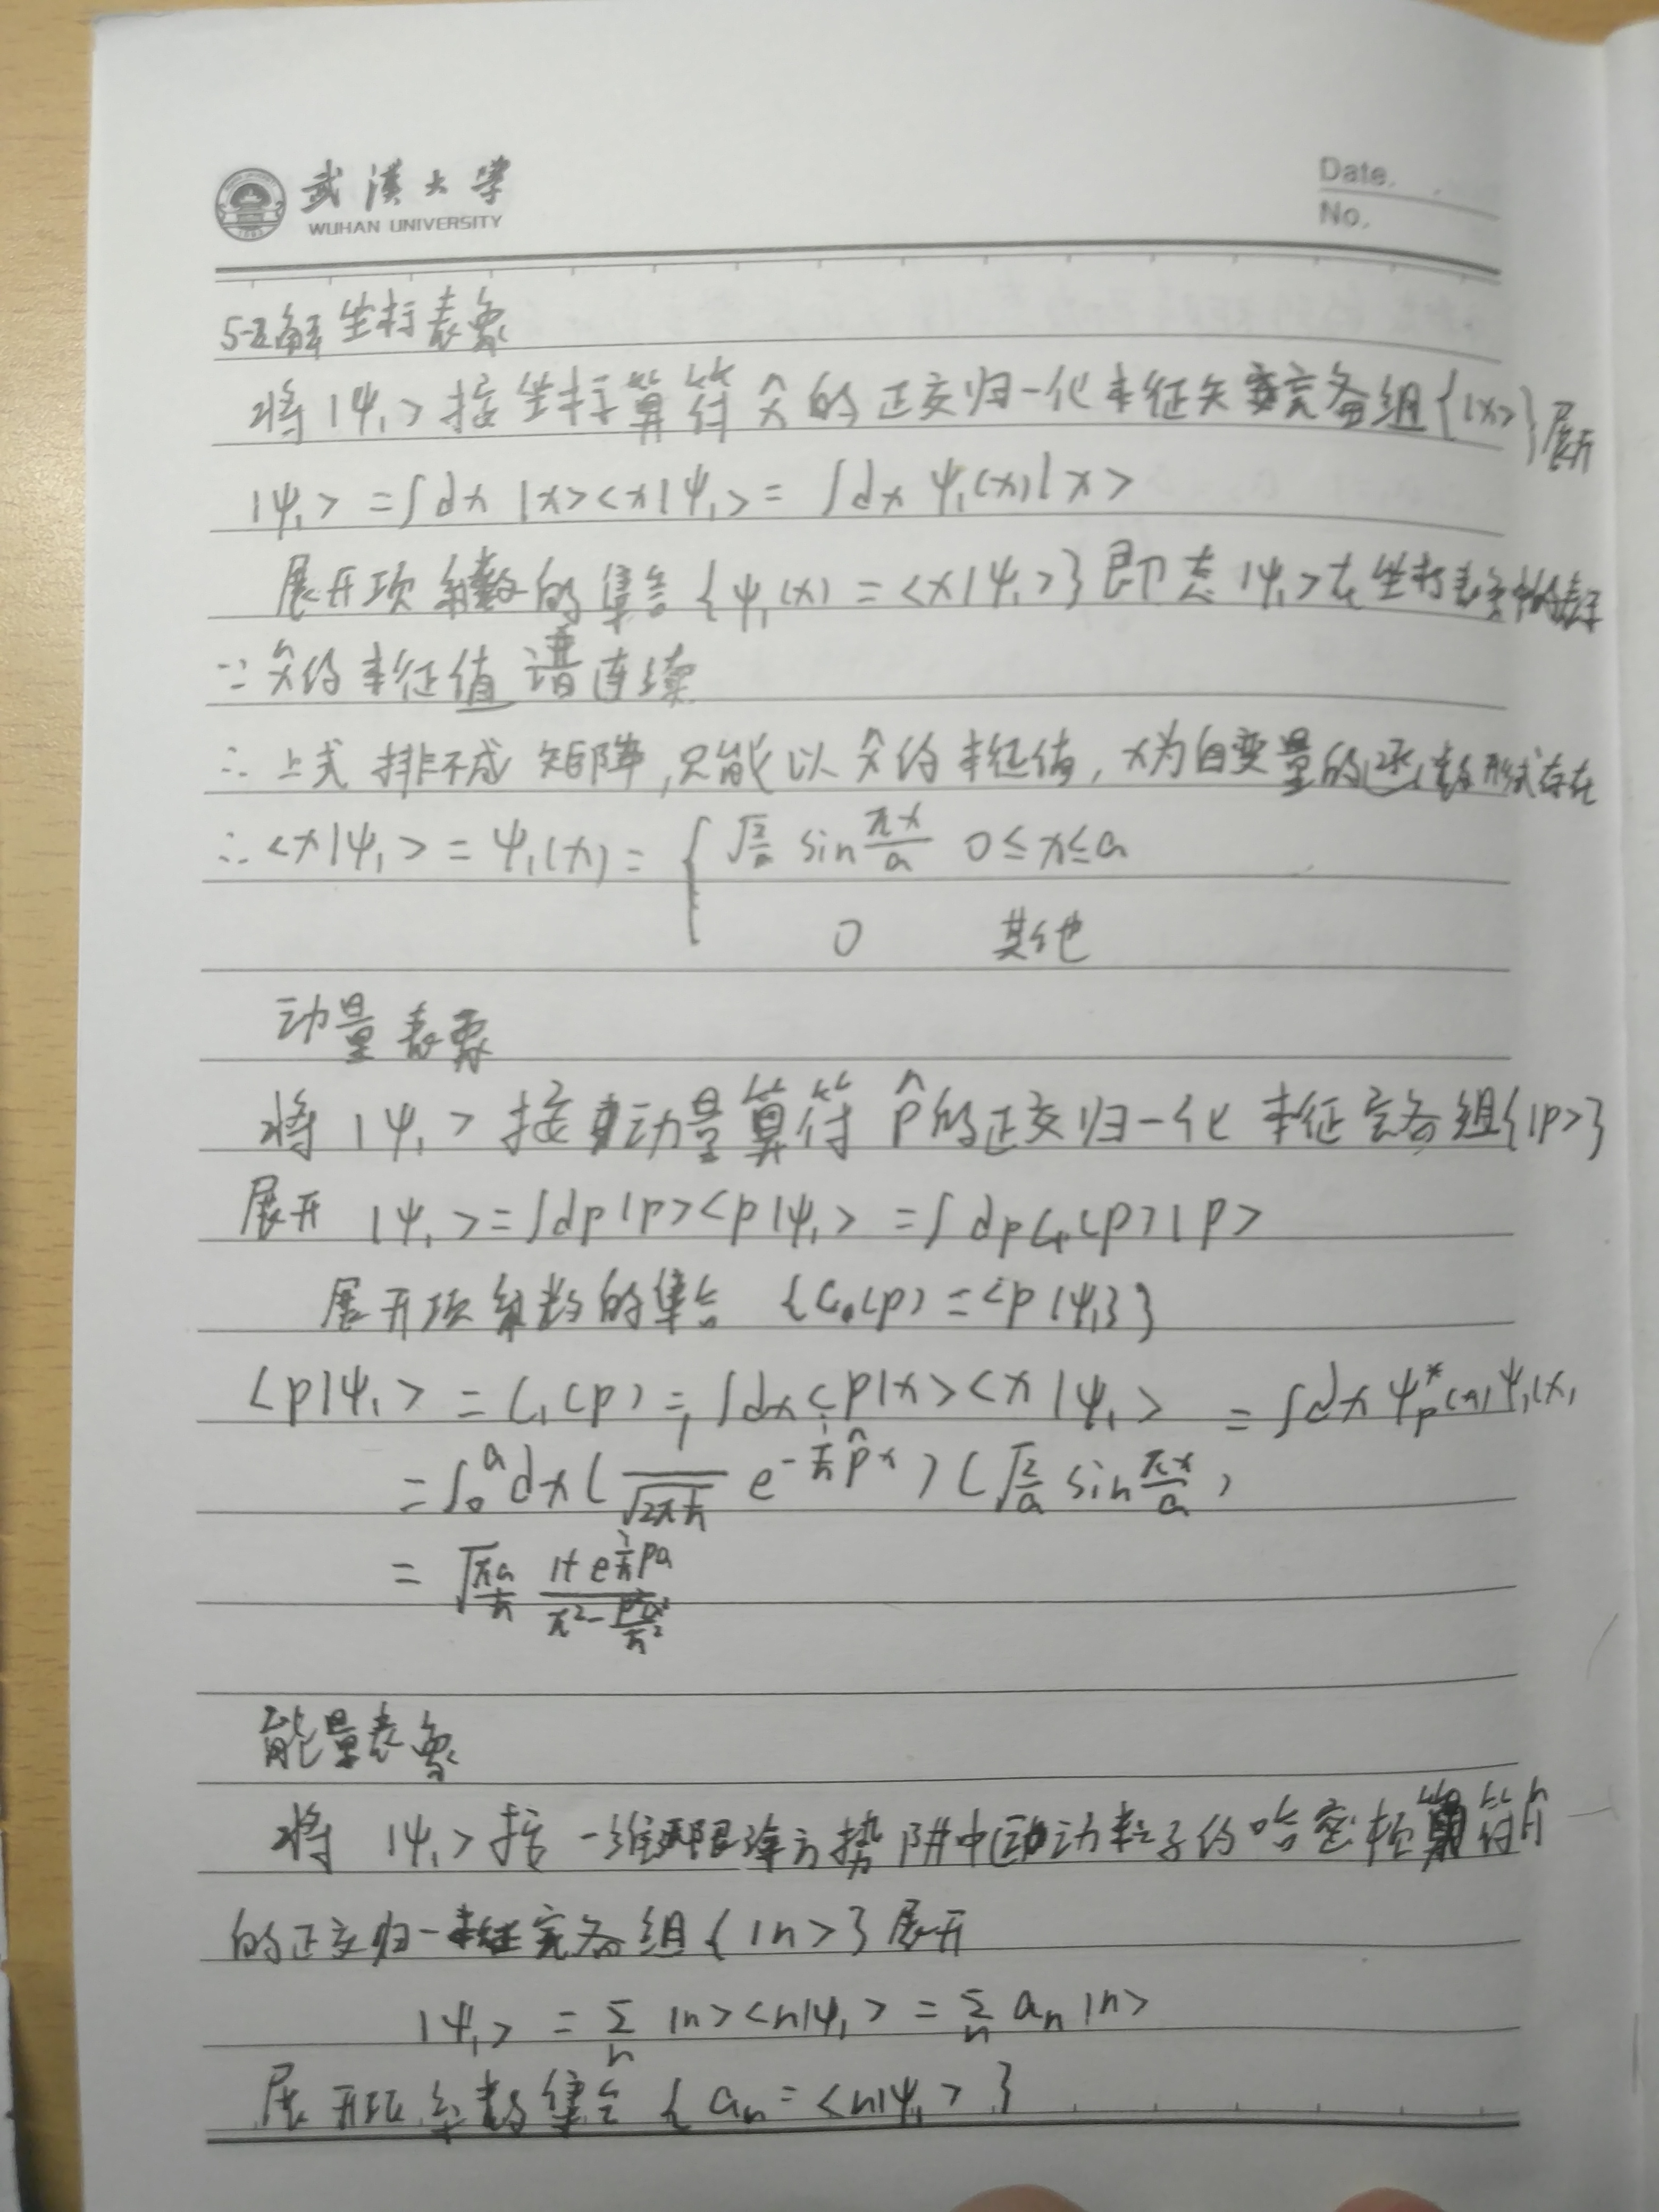 武漢大學
WUHAN UNIVERSITY
Date.
No.
5-2解 坐标表象
将 |ψ₁> 按坐标算符 x̂ 的正交归一化本征矢完备组{|x>}展开
|ψ₁> = ∫dx |x><x|ψ₁> = ∫dx ψ₁(x)|x>
展开项系数的集合 {ψ₁(x) = <x|ψ₁>} 即态 |ψ₁> 在坐标表象中的表示
∵ x̂的本征值谱连续
∴ 上式排不成矩阵,只能以x̂的本征值, x为自变量的函数形式存在
∴ <x|ψ₁> = ψ₁(x) = { √(2/a) sin(πx/a) 0≤x≤a
0 其他
动量表象
将 |ψ₁> 按动量算符 p̂的正交归一化 本征完备组{|p>}
展开 |ψ₁> = ∫dp|p><p|ψ₁> = ∫dp C₁(p)|p>
展开项系数的集合 {C₁(p) = <p|ψ₁}}
<p|ψ₁> = C₁(p) = ∫dx<p|x><x|ψ₁> = ∫dx ψ*ₚ(x)ψ₁(x)
= ∫₀ᵃ dx( 1/√(2πħ) e^(-i/ħ p̂x) ) (√(2/a) sin(πx/a))
= √(πa/ħ) (1+e^(i/ħ pa))/(π²-p²a²/ħ²)
能量表象
将 |ψ₁> 按一维无限深方势阱中运动粒子的哈密顿算符Ĥ
的正交归一本征完备组{|n>}展开
|ψ₁> = Σₙ |n><n|ψ₁> = Σₙ aₙ|n>
展开项系数集合 {aₙ = <n|ψ₁>}